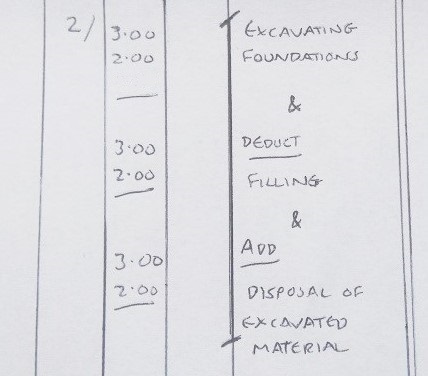 2/ 3.00 EXCAVATING
2.00 FOUNDATIONS
&
3.00 DEDUCT
2.00 FILLING
&
3.00 ADD
2.00 DISPOSAL OF
EXCAVATED
MATERIAL